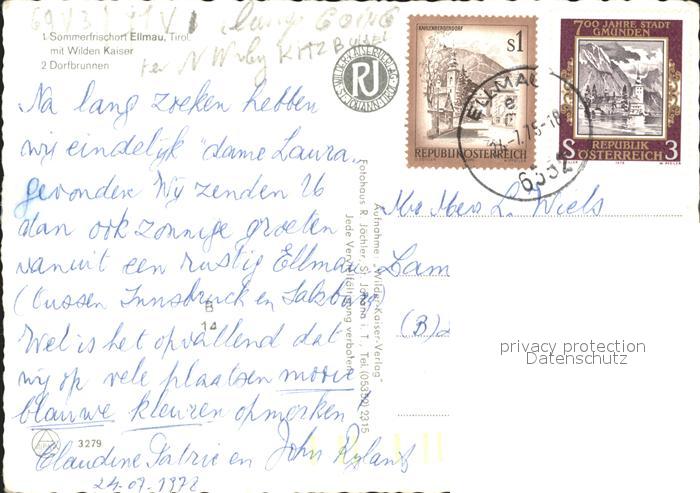 1 Sommerfrischort Ellmau, Tirol.
mit Wilden Kaiser
2 Dorfbrunnen
GOING
KITZBÜHEL
RJ
KAHLENBERGERDORF
s1
REPUBLIK ÖSTERREICH
700 JAHRE STADT
GMUNDEN
REPUBLIK
S ÖSTERREICH 3
ELLMAU
6352
Na lang zoeken hebben
wij eindelijk "dame Laura"
gevonden. Wij zenden U
dan ook zonnige groeten
vanuit een rustig Ellmau
(tussen Innsbruck en Salzburg)
Wel is het opvallend dat
wij op vele plaatsen mooie
blauwe kleuren opmerken
Claudine Patrie en John Rylant
24-07-197
B
14
3279
Aufnahme: "Wilder-Kaiser-Verlag"
Fotohaus R. Jöchler, St. Johann i. T., Tel. (05352) 2315
Jede Vervielfältigung verboten
L. Wiels
Dam
(B)
privacy protection
Datenschutz